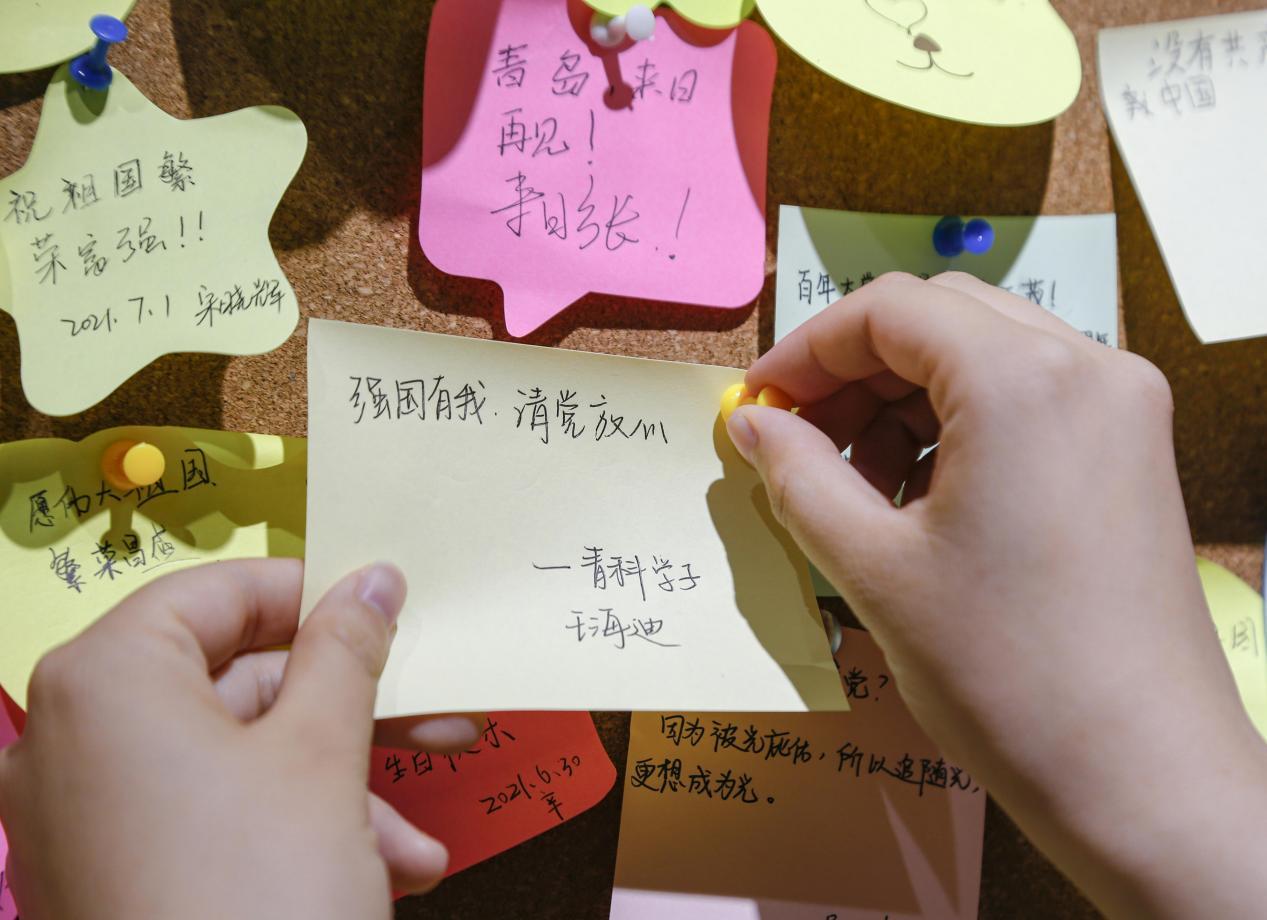 青岛,来日
再见!
来日方长!
没有共产
新中国
祝祖国繁
荣富强!!
2021.7.1 宋晓辉
百年大党
我!
强国有我.请党放心
一青科学子
王海迪
愿伟大祖国
繁荣昌盛
党?
生日快乐
2021.6.30
辛
因为被光庇佑,所以追随光,
更想成为光。
国